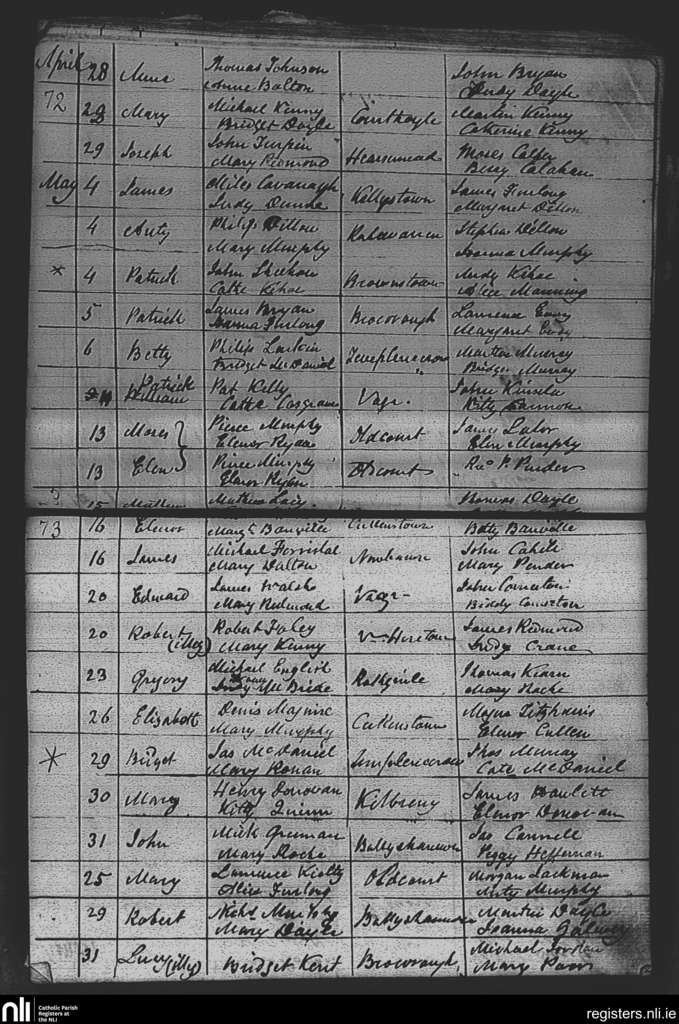 April 28 Anne Thomas Johnson John Bryan
Anne Bolton Andy Doyle
72 28 Mary Michael Kenny Courthoyle Martin Kenny
Bridget Doyle Catherine Kenny
29 Joseph John Turpin Moses
Mary Redmond Bury Calahan
May 4 James Miles Cavanagh Kellystown James Furlong
Judy Margaret Dillon
4 Anty Philip Dillon Stephen Dillon
Mary Murphy Joanna Murphy
* 4 Patrick John Sheehan Brownstown Andy Kehoe
Cathe Kehoe Alice Manning
5 Patrick James Bryan Brocorough Laurence
Joanna Furlong Margaret
6 Betty Philip Larkin Templenecrow Martin Murray
Bridget McDaniel Bridget Murray
Patrick Pat Kelly Vagr. John Kinsela
William Cathe Cosgrave Kitty
13 Moses Pierce Murphy Oldcourt James Lalor
Elenor Ryan Ellen Murphy
13 Elen Pierce Murphy Oldcourt Revd P. Pender
Elenor Ryan
15 Mathew Mathew Lacy Thomas Doyle
73 16 Elenor Margt Banville Cullenstown Betty Banville
16 James Michael Forrishal Newhouse John Cahill
Mary Dalton Mary Pender
20 Edward James Walsh Vagr John
Mary Redmond Biddy
20 Robert Robert Foley James Redmond
(illeg) Mary Kenny Judy Crane
23 Gregory Michael English Thomas Kearn
McBride Mary Roche
26 Elizabeth Denis Maguire Cullenstown
Mary Murphy Elenor Cullen
* 29 Bridget Jas McDaniel Templenecrow Thos Murray
Mary Ronan Cate McDaniel
30 Mary Henry Donovan Kilbreny James
Kitty Quinn Elenor Donovan
31 John Mick Ballyshannon Jas Connell
Mary Roche Peggy Heffernan
25 Mary Laurence Kielty Oldcourt Morgan Lackman
Alice Furlong Anty Murphy
29 Robert Nichs Murphy Ballyshannon Martin Doyle
Mary Doyle Joanna Galwey
31 Lucy (illeg) Bridget Kent Brocorough Michael Jordan
Mary
nli Catholic Parish
Registers at
the NLI
registers.nli.ie